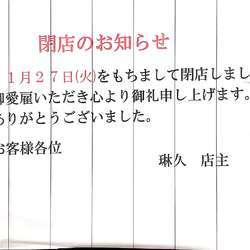 閉店のお知らせ
１月２７日(火)をもちまして閉店しまし
御愛雇いただき心より御礼申し上げます。
ありがとうございました。
お客様各位
琳久 店主